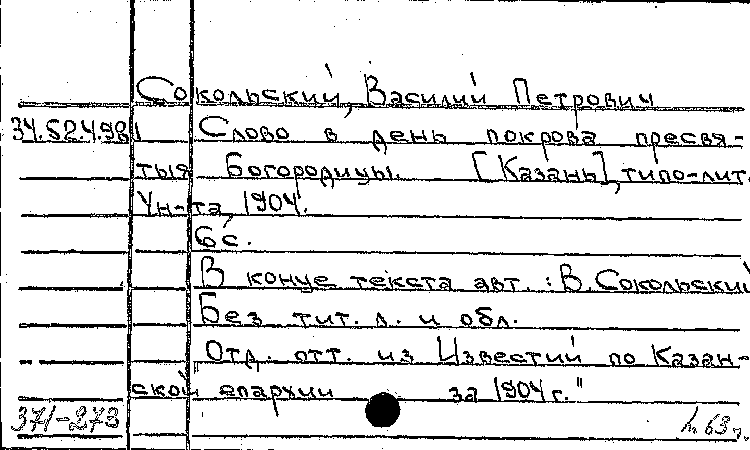 Сокольский, Василий Петрович
34.52.498 Слово в день покрова пресвя-
тыя Богородицы. [Казань], типо-лит.
Ун-та, 1904.
6 с.
В конце текста авт.: В. Сокольский
Без тит. л. и обл.
"Отд. отт. из Известий по Казан-
ской епархии за 1904 г."
371-273 63 г.